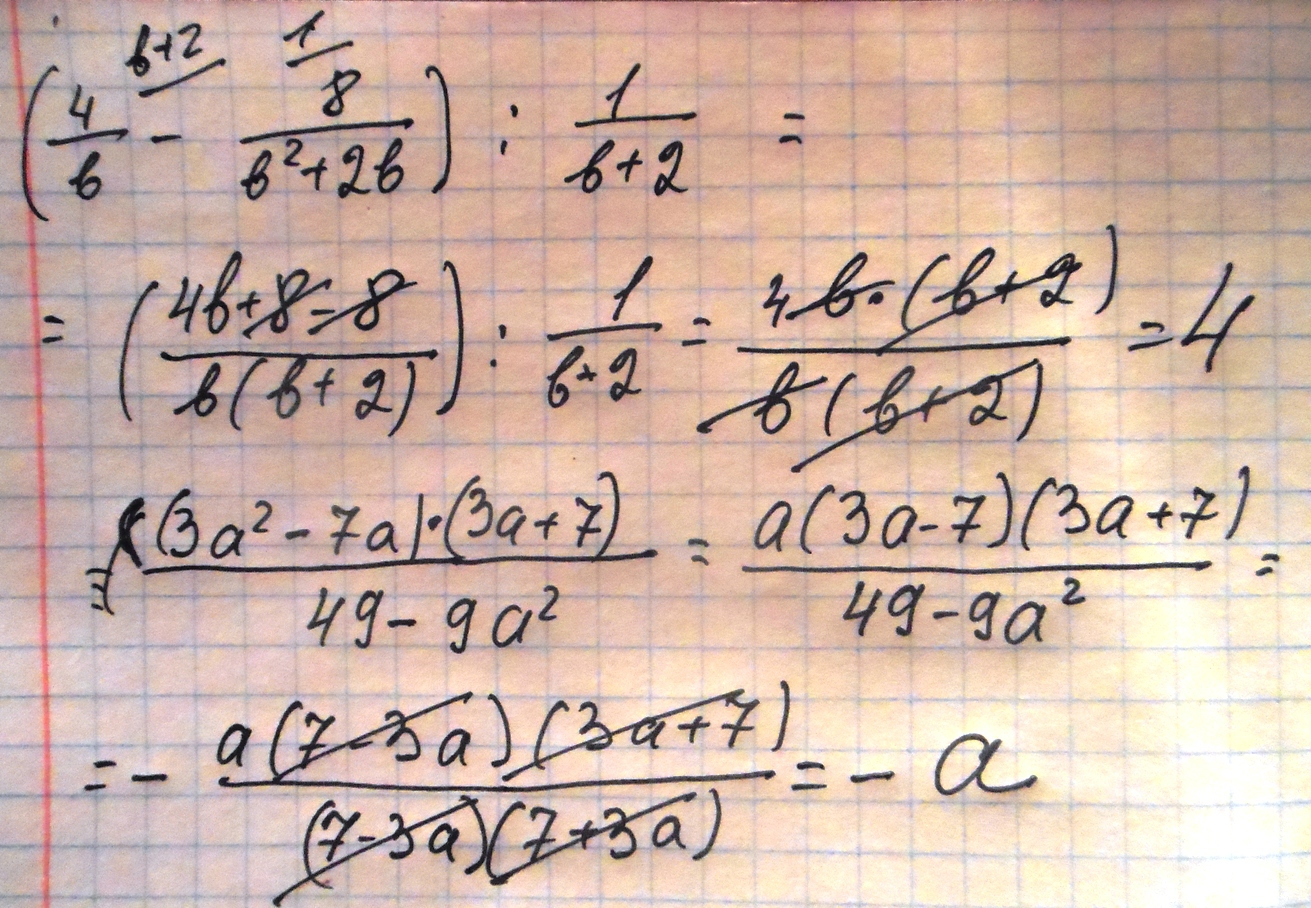 (4/в^(в+2) - 8/(в²+2в)^1) : 1/(в+2) =
= ((4в+8-8)/(в(в+2))) : 1/(в+2) = (4в·(в+2))/(в(в+2)) = 4
= ((3a²-7a)·(3a+7))/(49-9a²) = (a(3a-7)(3a+7))/(49-9a²) =
= - (a(7-3a)(3a+7))/((7-3a)(7+3a)) = - a